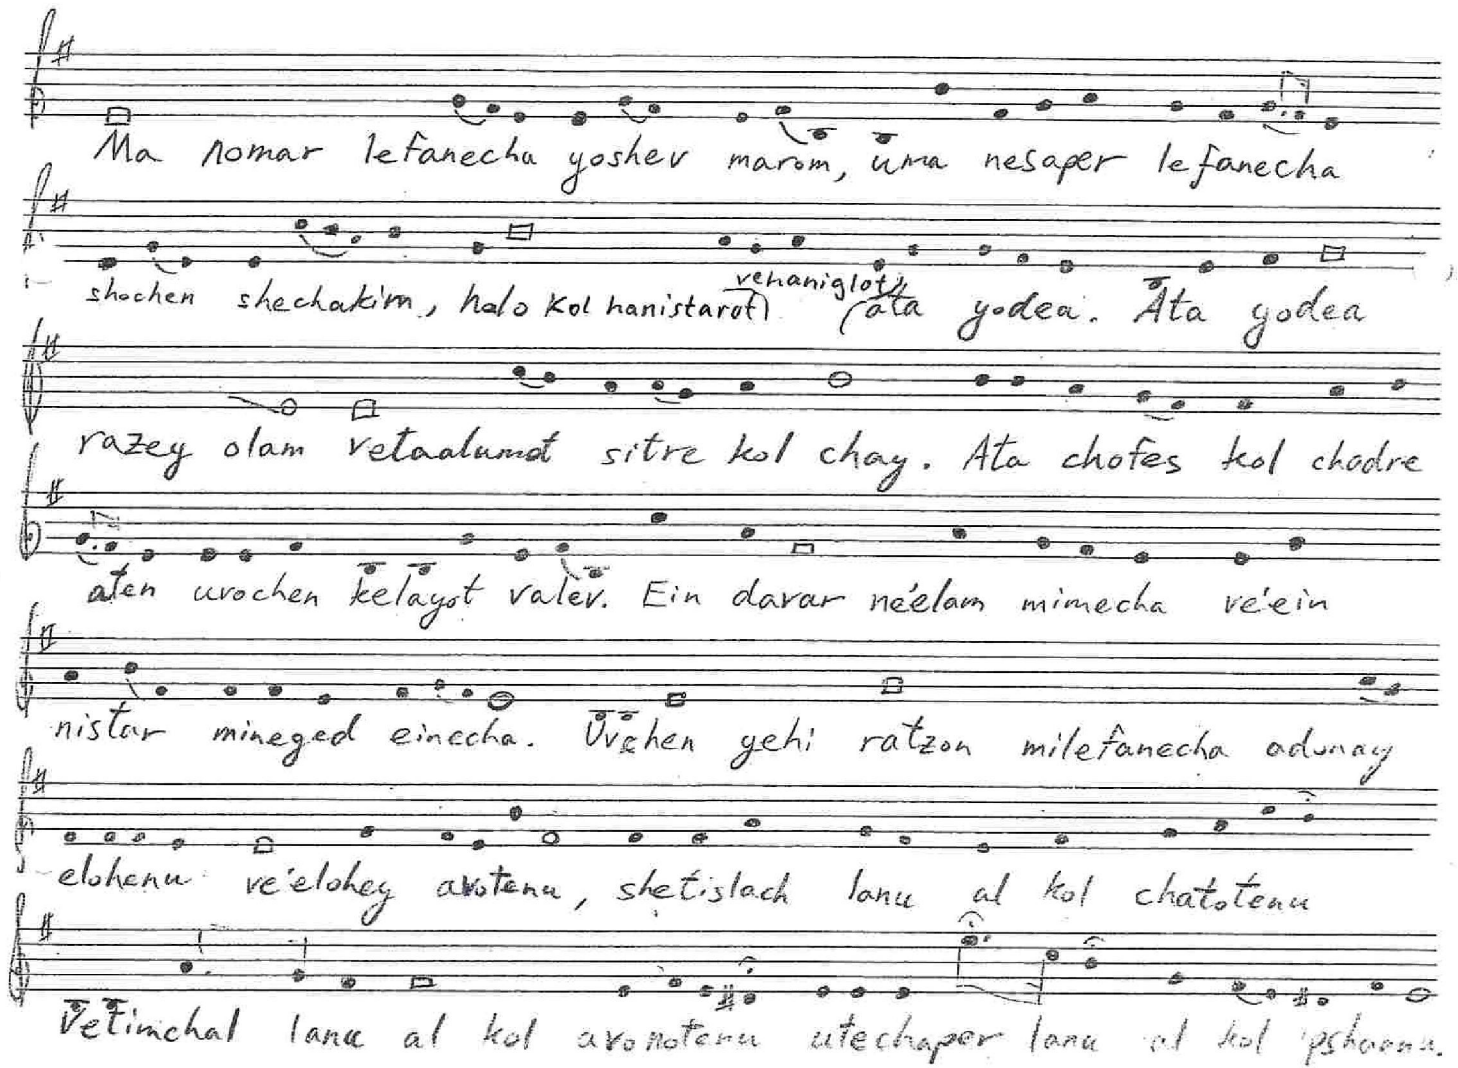 Ma nomar lefanecha yoshev marom, uma nesaper lefanecha
shochen shechakim, halo kol hanistarot vehaniglot (ata yodea. Ata yodea
razey olam vetaalumot sitre kol chay. Ata chofes kol chadre
aten uvochen kelayot valev. Ein davar ne'elam mimecha ve'ein
nistar mineged einecha. Uvchen yehi ratzon milefanecha adonay
elohenu ve'elohey avotenu, shetislach lanu al kol chatotenu
Vetimchal lanu al kol avonotenu utechaper lanu al kol pshaenu.